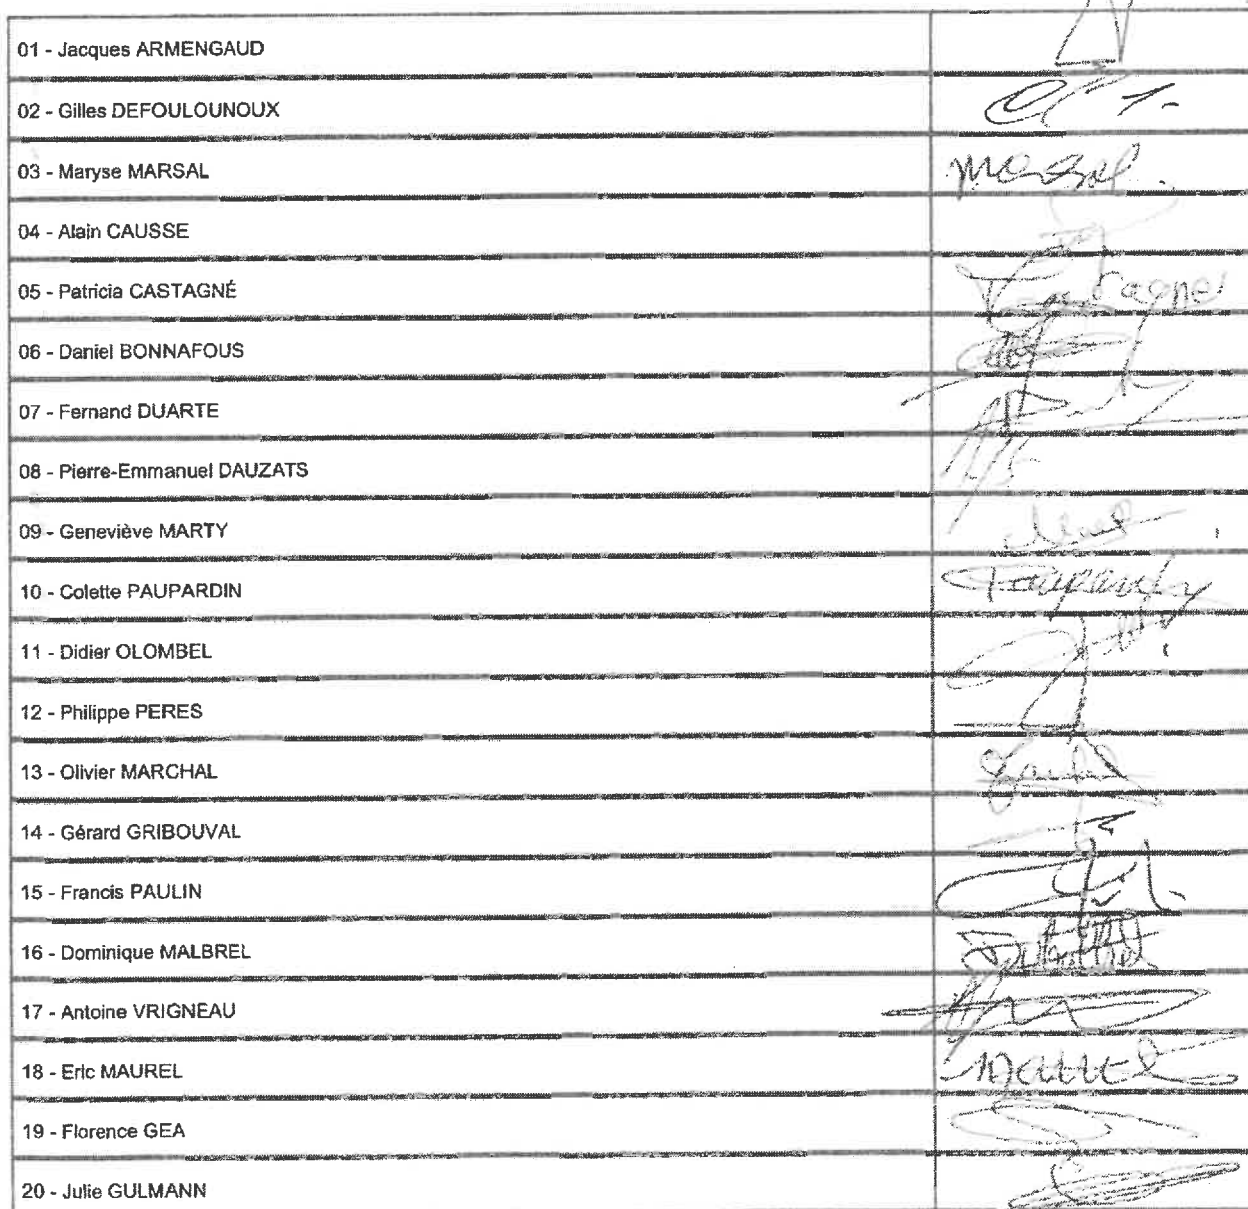 01 - Jacques ARMENGAUD
02 - Gilles DEFOULOUNOUX
03 - Maryse MARSAL
Marsal
04 - Alain CAUSSE
05 - Patricia CASTAGNÉ
06 - Daniel BONNAFOUS
07 - Fernand DUARTE
08 - Pierre-Emmanuel DAUZATS
09 - Geneviève MARTY
10 - Colette PAUPARDIN
11 - Didier OLOMBEL
12 - Philippe PERES
13 - Olivier MARCHAL
14 - Gérard GRIBOUVAL
15 - Francis PAULIN
16 - Dominique MALBREL
17 - Antoine VRIGNEAU
18 - Eric MAUREL
Maurel
19 - Florence GEA
20 - Julie GULMANN